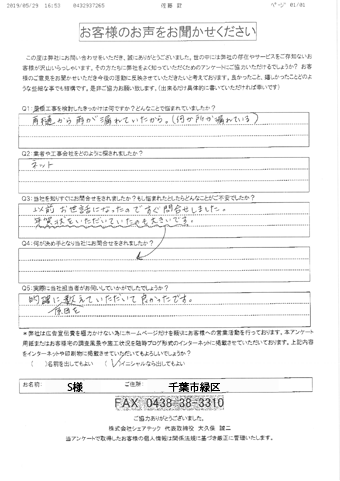 2019/05/29 16:53 0432937265 佐藤 ページ 01/01
お客様のお声をお聞かせください
この度は弊社へお問い合わせをいただき、誠にありがとうございました。世の中には弊社の存在やサービスをご存知ないお
客様が沢山いらっしゃいます。その方たちに弊社をよく知っていただくためのアンケートにご協力いただけるでしょうか？ お客
様のご意見をお聞かせいただき今後の活動に反映させていただきたいと考えております。良かったこと、嬉しかったことどのよ
うな些細な事でも結構です。是非ご協力をお願い致します。（出来るだけ具体的に書いていただければ幸いです）
Q1：屋根工事を検討したきっかけは何ですか？どんなことで悩まれていましたか？
雨樋から雨が漏れていたから。(何か所が漏れている)
Q2：業者や工事会社をどのように探されましたか？
ネット
Q3：当社を知りすぐにお問合せをされましたか？もし悩まれたとしたらどんなことがご不安でしたか？
以前お世話になったのですぐ問合せしました。
年賀状をいただいていたのも大きいです。
Q4：何が決め手となり当社にお問合せをされましたか？
Q5：実際に当社担当者がお伺いしていかがでしたでしょうか？
的確に教えていただいて良かったです。
原因を
＊弊社は広告宣伝費を極力かけない為にホームページだけを頼りにお客様への営業活動を行っております。本アンケート
用紙またはお客様宅の調査風景や施工状況を随時ブログ形式のインターネットに掲載させていただいております。上記内容
をインターネットや印刷物に掲載させていただいてもよろしいでしょうか？
（ ）名前を出してもよい （✓）イニシャルなら出してもよい
お名前： S様 ご住所： 千葉市緑区
FAX 0438-38-3310
ご協力ありがとうございました。
株式会社シェアテック 代表取締役 大久保 誠二
当アンケートで取得したお客様の個人情報は関係法規に基づき厳正に管理いたします。